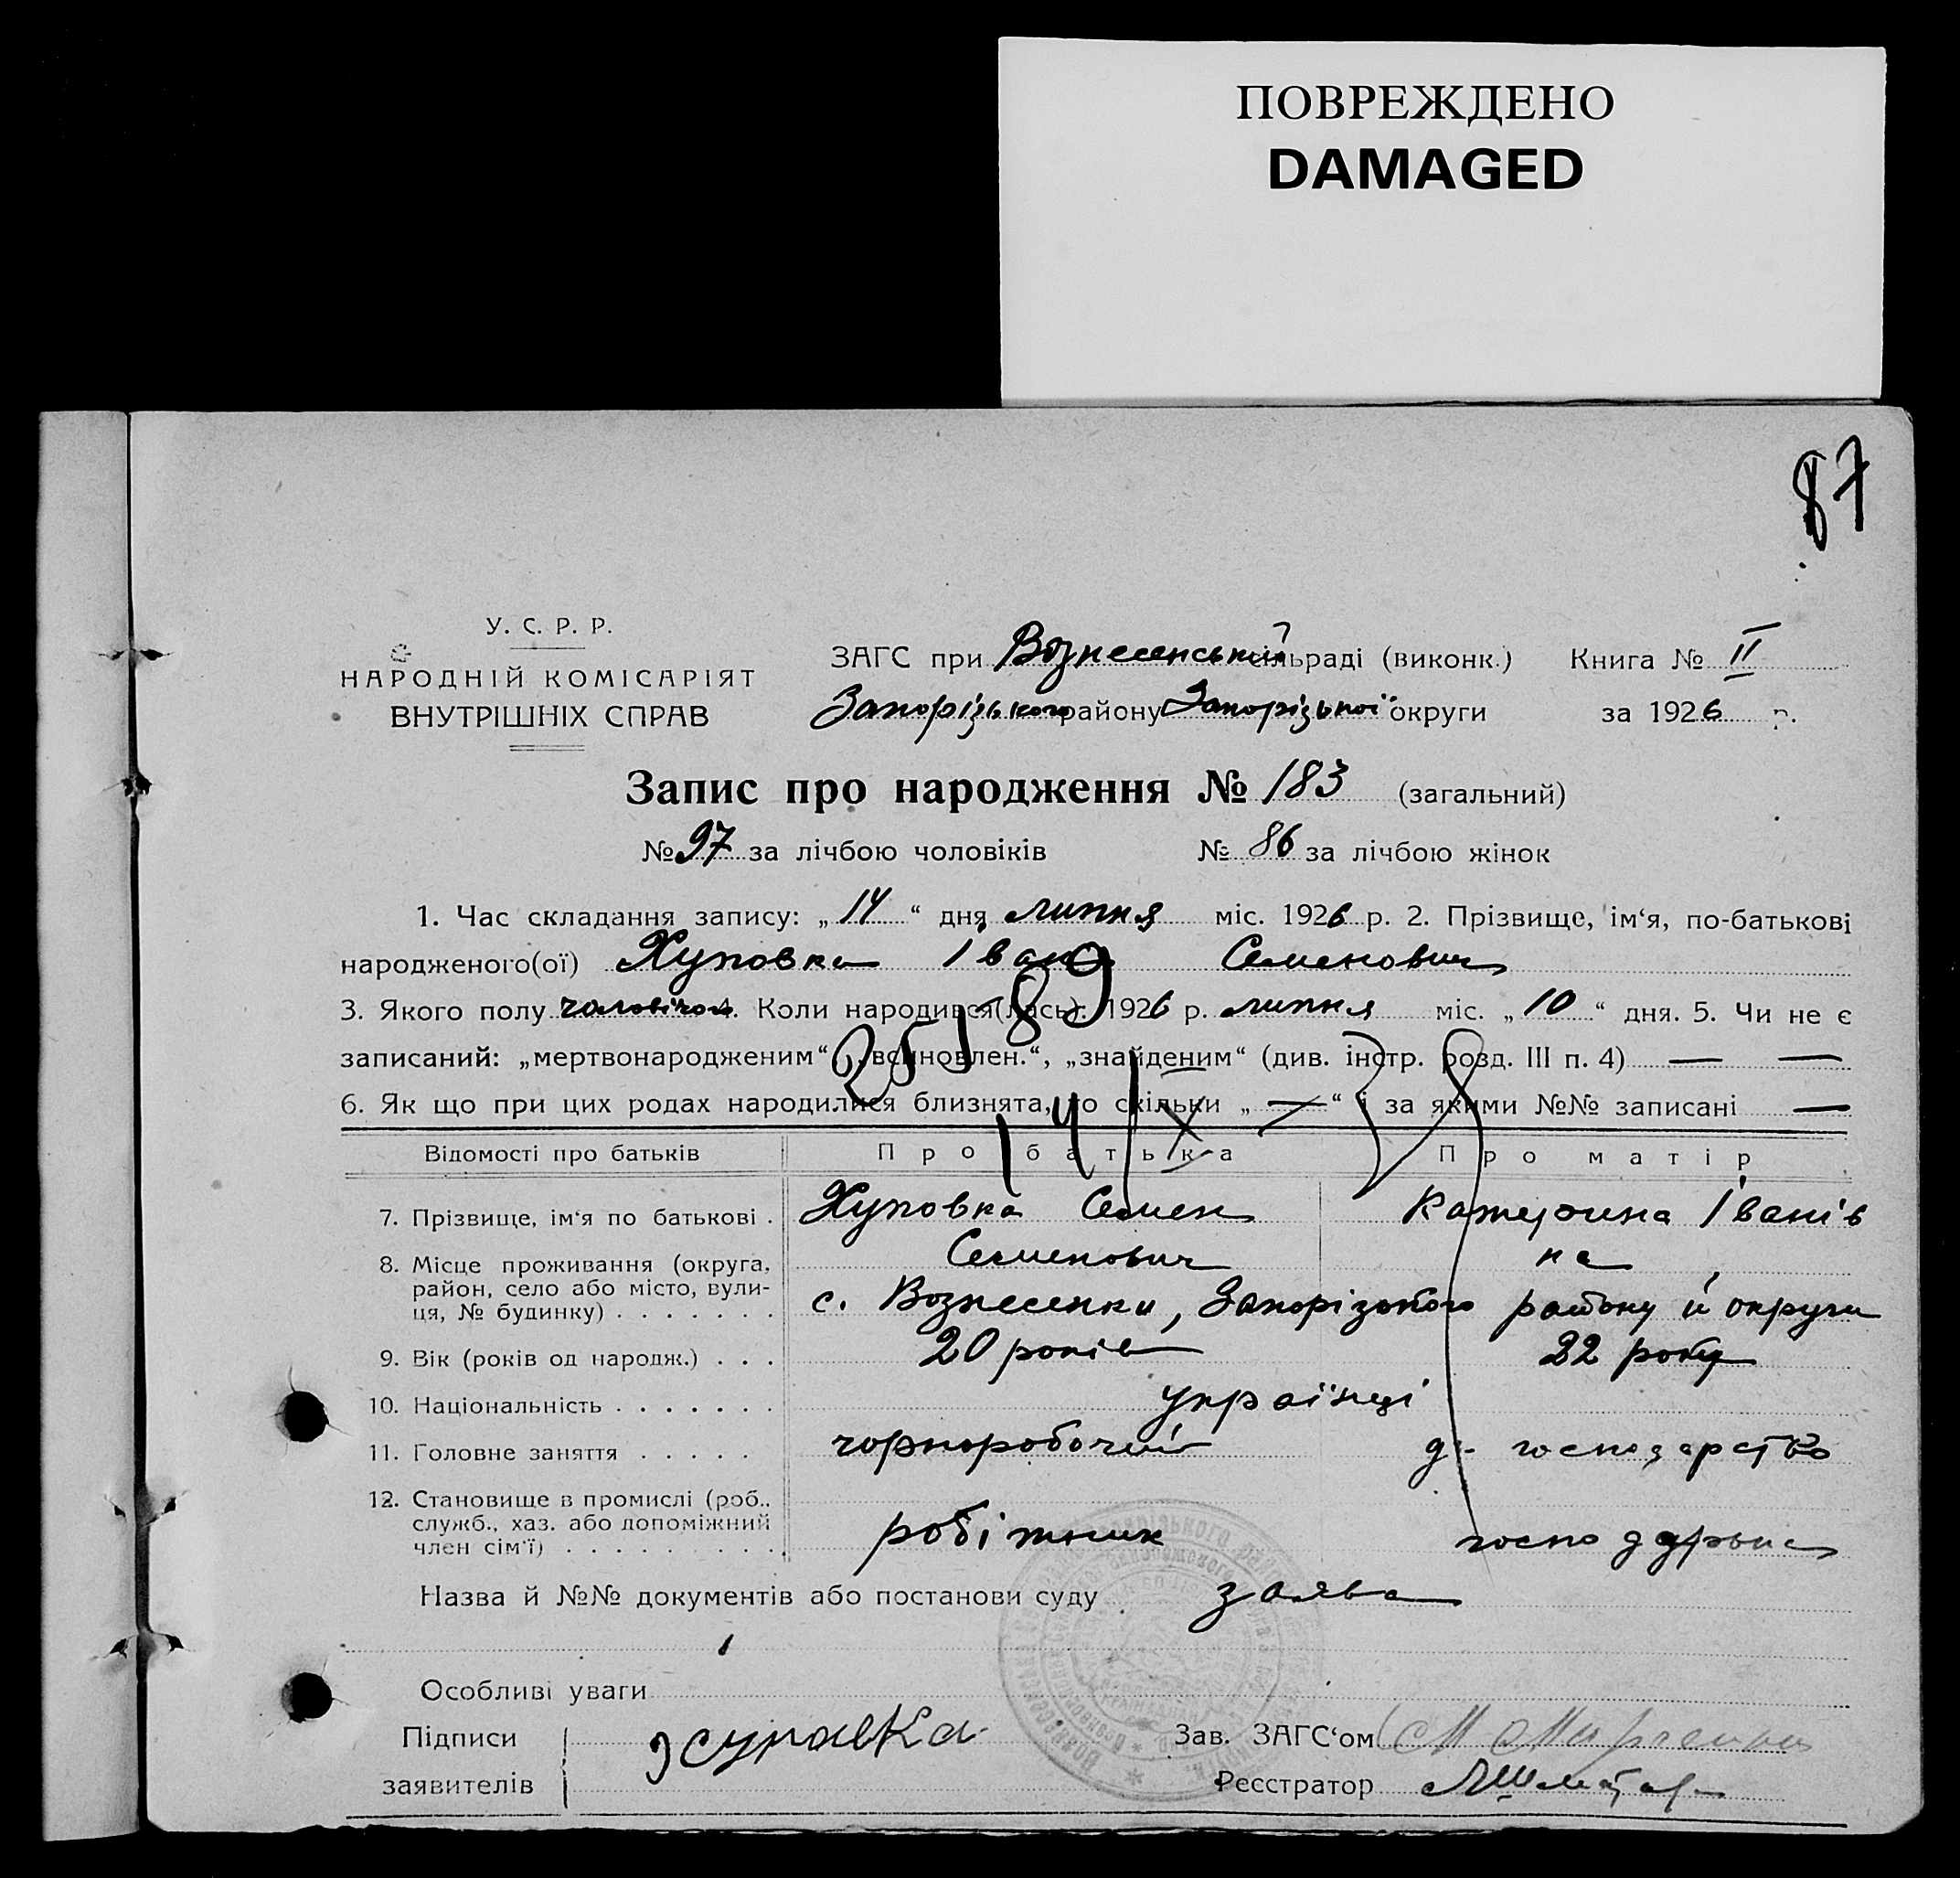 ПОВРЕЖДЕНО
DAMAGED
87
У. С. Р. Р.
НАРОДНІЙ КОМІСАРІЯТ
ВНУТРІШНІХ СПРАВ
ЗАГС при Вознесенській сільраді (виконк.) Книга № II
Запорізького району Запорізької округи за 1926 р.
Запис про народження № 183 (загальний)
№ 97 за лічбою чоловіків № 86 за лічбою жінок
1. Час складання запису: „14“ дня липня міс. 1926 р. 2. Прізвище, ім‘я, по-батькові
народженого(ої) Хуповка Іван Семенович
3. Якого полу чоловічого 4. Коли народився(лась): 1926 р. липня міс. „10“ дня. 5. Чи не є
записаний: „мертвонародженим“, „всиновлен.“, „знайденим“ (див. інстр. розд. III п. 4) — —
6. Як що при цих родах народилися близнята, то скільки „—“ і за якими №№ записані —
Відомості про батьків Про батька Про матір
7. Прізвище, ім‘я по батькові . Хуповка Семен Катерина Іванів
Семенович на
8. Місце проживання (округа, район, село або місто, вули-
ця, № будинку) . . . . . . . с. Вознесенки, Запорізького району й округи
9. Вік (років од народж.) . . . 20 років 22 року
10. Національність . . . . . . . українці
11. Головне заняття . . . . . чорноробочий д. господарство
12. Становище в промислі (роб., служб., хаз. або допоміжний
член сім‘ї) . . . . . . . . . . робітник господарька
Назва й №№ документів або постанови суду заява
Особливі уваги
Підписи
заявителів
Зав. ЗАГС‘ом
Реєстратор